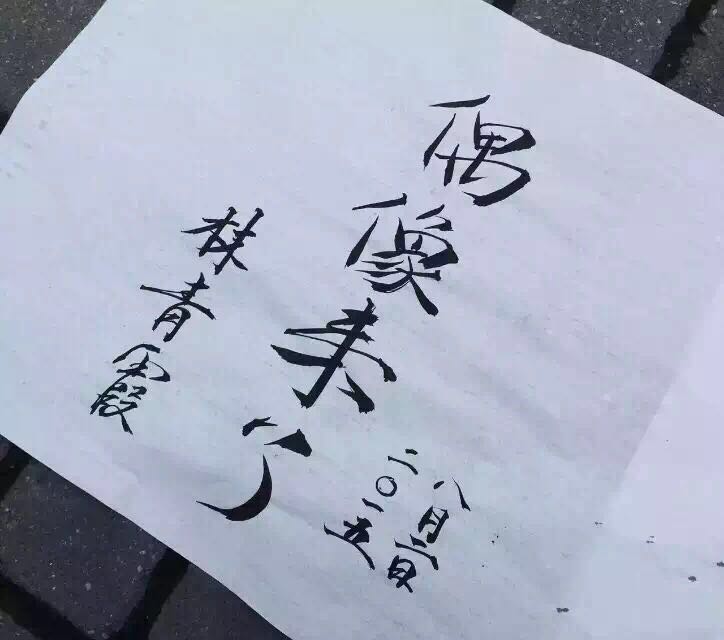 偶像来了
林青霞
二〇一五
八月二日